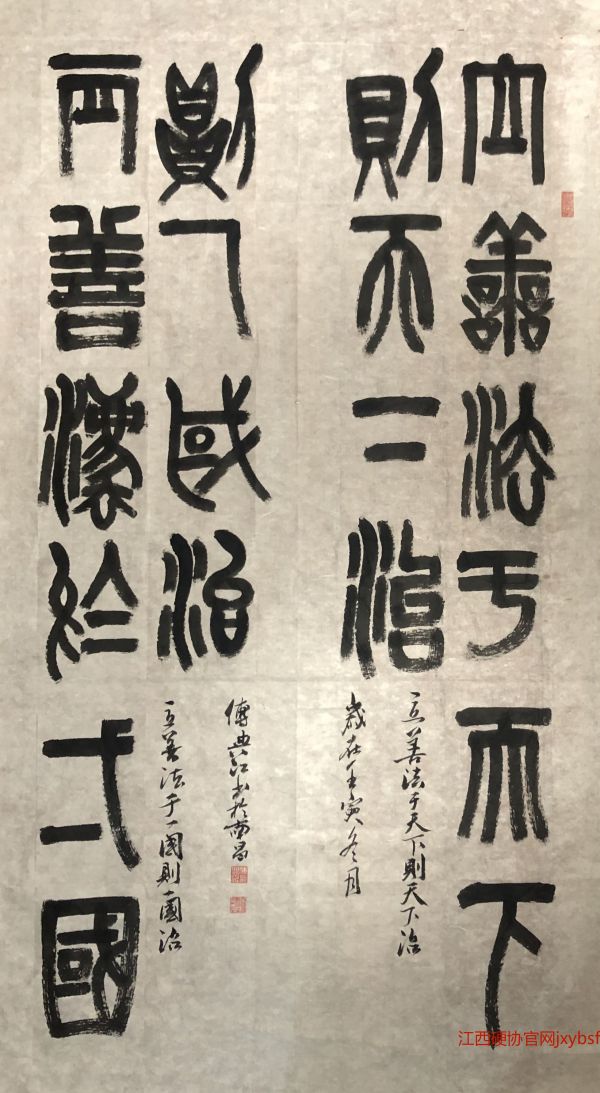 立善法于天下
則天下治
立善法于天下則天下治
歲在壬寅冬月
立善灋於弌國
則一國治
立善法于一國則一國治
傅典江书於南昌
江西硬协官网jxybsf